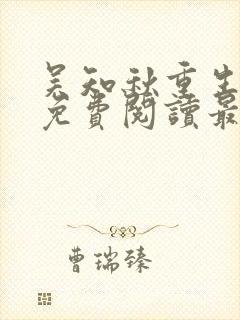 吴知秋重生
免費閱讀最
曹瑞臻